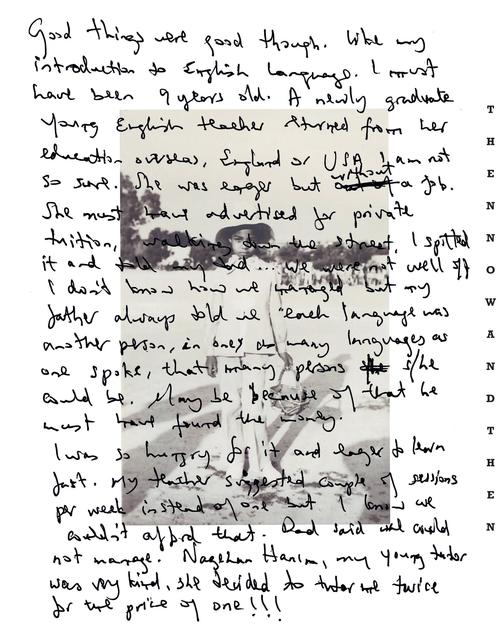 Good things were good though. Like my
introduction to English Language. I must
have been 9 years old. A newly graduate
young English teacher returned from her
education overseas, England or USA I am not
so sure. She was eager but without a job.
She must have advertised for private
tuition, walking down the street, I spotted
it and told my dad ... we were not well off
I don't know how we managed but my
father always told me "each language was
another person, in one, as many languages as
one spoke, that many persons s/he
could be. May be because of that he
must have found the money.
I was so hungry for it and eager to learn
fast. My teacher suggested couple of sessions
per week instead of one but I know we
couldn't afford that. Dad said we could
not manage. Nagehan Hanim, my young tutor
was very kind, she decided to tutor me twice
for the price of one!!!
THEN NOW AND THEN